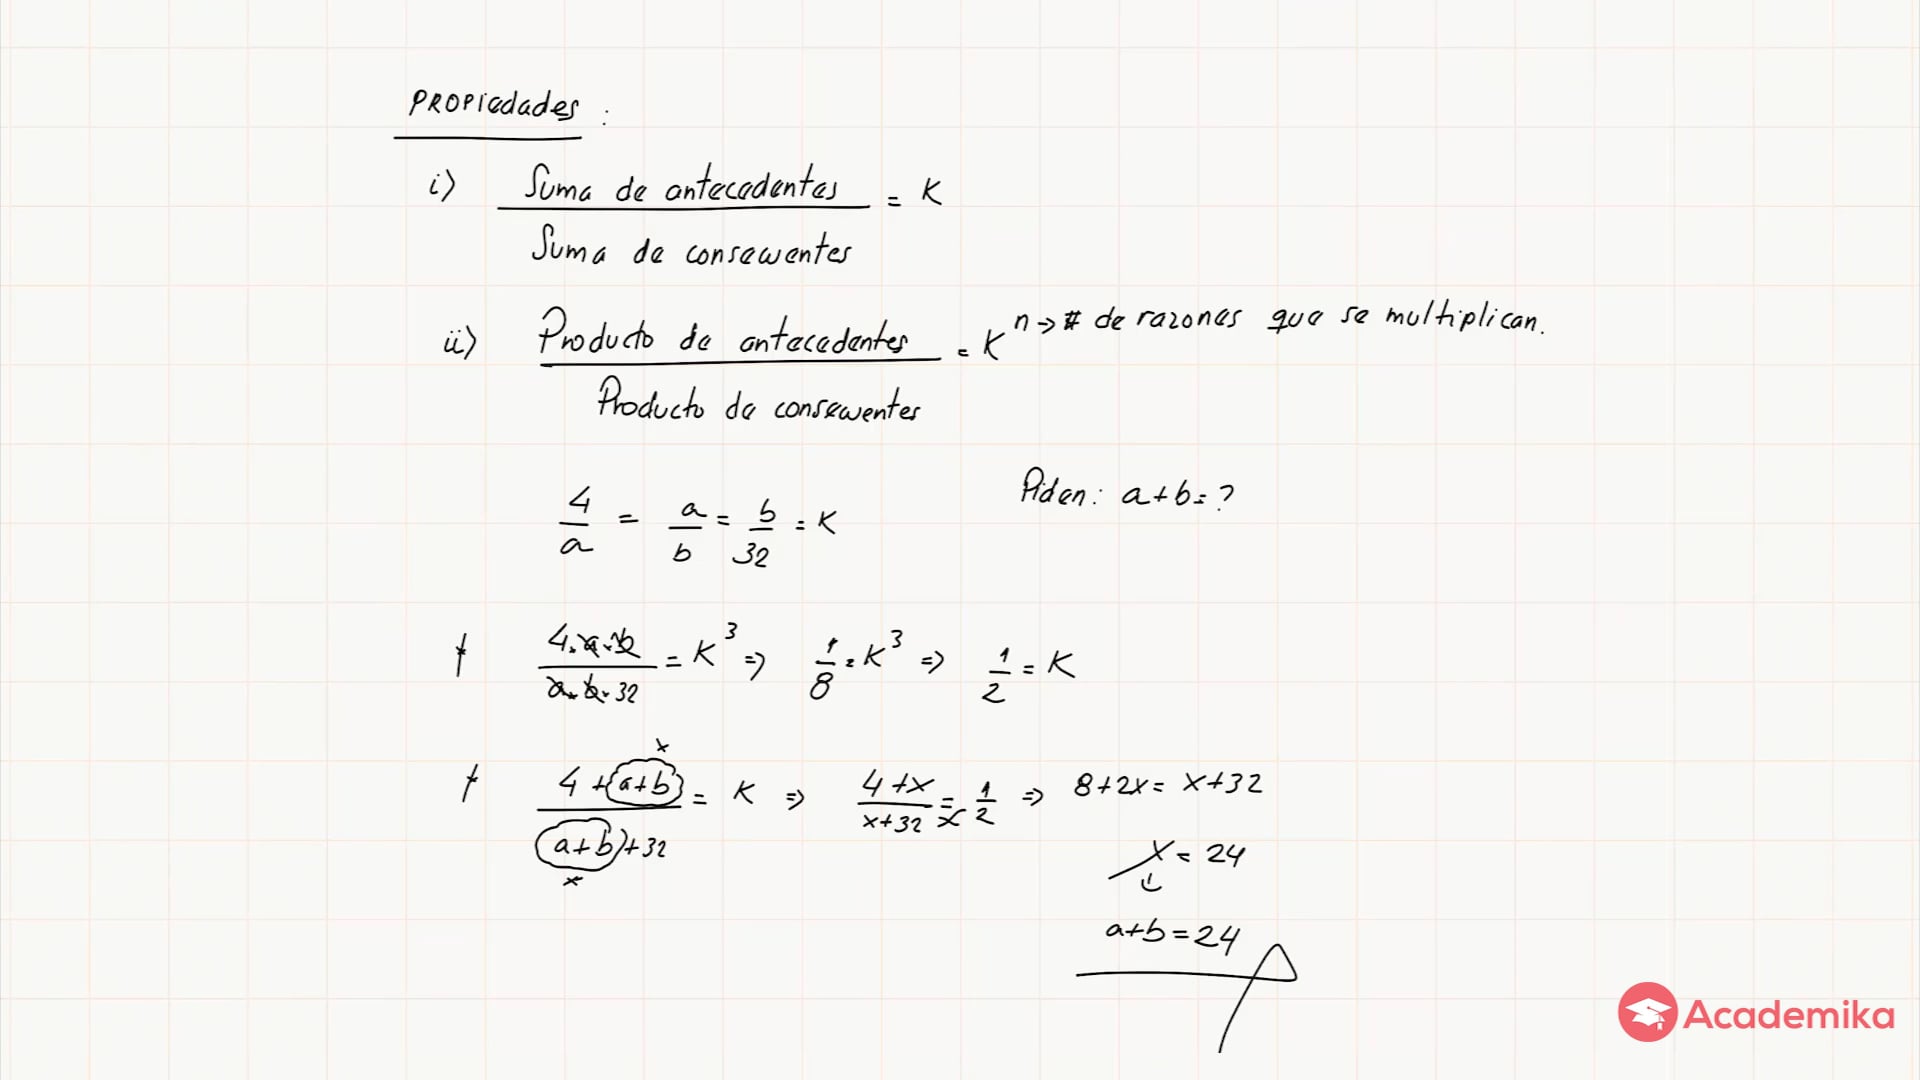 PROPiedades :
i) Suma de antecedentes / Suma de consecuentes = K
ii) Producto de antecedentes / Producto de consecuentes = K^n → # de razones que se multiplican.
4/a = a/b = b/32 = K
Piden: a+b = ?
4·a·b / a·b·32 = K^3 ⇒ 1/8 = K^3 ⇒ 1/2 = K
x
4+(a+b) / (a+b)+32 = K ⇒ 4+x / x+32 = 1/2 ⇒ 8+2x = x+32
x
x = 24
a+b = 24
Academika